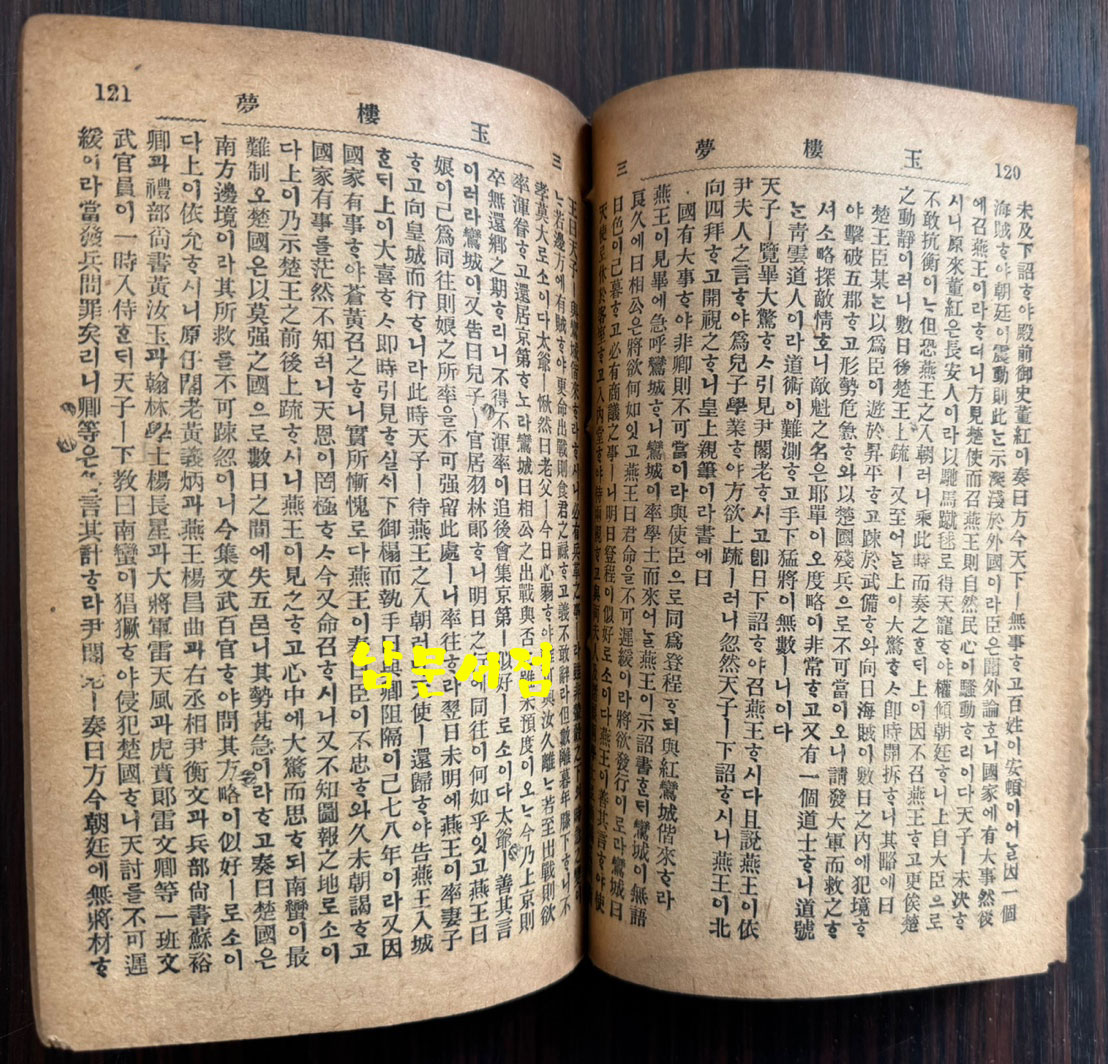 120
玉樓夢 三
未及下詔ᄒᆞ야殿前御史董紅이奏曰方今天下ㅣ無事ᄒᆞ고百姓이安頓이어ᄂᆞᆯ因一個
海賊ᄒᆞ야朝廷이震動則此ᄂᆞᆫ示深淺於外國이라臣은聞外論ᄒᆞ니國家에有大事然後
에召燕王이라ᄒᆞ더니方見楚使而召燕王則自然民心이騷動ᄒᆞ리이다天子ㅣ未决ᄒᆞ
시니原來董紅은長安人이라以馳馬蹴毬로得天寵ᄒᆞ야權傾朝廷ᄒᆞ니上自大臣으로
不敢抗衡이ᄂᆞᆫ但恐燕王之入朝러니乘此時而奏之ᄒᆞᆫᄃᆡ上이因不召燕王ᄒᆞ고更俟楚
之動靜이러니數日後楚王上䟽ㅣ又至어ᄂᆞᆯ上이大驚ᄒᆞᄉᆞ卽時開拆ᄒᆞ니其略에曰
楚王臣某ᄂᆞᆫ以爲臣이遊於昇平ᄒᆞ고踈於武備ᄒᆞ와向日海賊이數日之內에犯境ᄒᆞ
야擊破五郡ᄒᆞ고形勢危急ᄒᆞ와以楚國殘兵으로不可當이오니請發大軍而救之ᄒᆞ
셔ᄉᆞ略探敵情ᄒᆞ니敵魁之名은耶單이오度略이非常ᄒᆞ고又有一個道士ᄒᆞ니道號
ᄂᆞᆫ靑雲道人이라道術이難測ᄒᆞ고手下猛將이無數ㅣ니이다
天子ㅣ覽畢大驚ᄒᆞᄉᆞ引見尹閣老ᄒᆞ시고卽日下詔ᄒᆞ야召燕王ᄒᆞ시다且說燕王이依
尹夫人之言ᄒᆞ야爲兒子學業ᄒᆞ야方欲上䟽ㅣ러니忽然天子ㅣ下詔ᄒᆞ시니燕王이北
向四拜ᄒᆞ고開視之ᄒᆞ니皇上親筆이라書에曰
國有大事ᄒᆞ야非卿則不可當이라與使臣으로同爲登程ᄒᆞ되與紅鸞城偕來ᄒᆞ라
燕王이見畢에急呼鸞城ᄒᆞ니鸞城이率學士而來어ᄂᆞᆯ燕王이示詔書ᄒᆞᆫᄃᆡ鸞城이無語
良久에曰相公은將欲何如잇고燕王曰君命을不可遲緩이라將欲發行이로라鸞城曰
日色이已暮ᄒᆞ고必有商議之事ㅣ니明日登程이似好로소이다燕王이善其言ᄒᆞ야使
121
三 玉樓夢
ᄂᆞᆫ若邊方에有賊ᄒᆞ야更命出戰則食君之祿ᄒᆞ고義不敢辭라但數離暮年膝下ᄒᆞ니不
孝莫大로소이다太爺ㅣ愀然曰老父ㅣ今日心弱ᄒᆞ야與汝久離ᄂᆞᆫ若至出戰則欲
率渾眷ᄒᆞ고還居京第ᄒᆞ노라鸞城曰相公之出戰與否ᄂᆞᆫ雖未預度이오ᄂᆞᆫ今乃上京則
卒無還鄕之期ᄒᆞ리니不得不渾率이追後會集京第ㅣ似好ㅣ로소이다太爺ㅣ善其言
이러라鸞城이又告曰兒子ㅣ官居羽林郞ᄒᆞ니明日之行에同往이何如乎잇고燕王曰
娘이已爲同往則娘之所率을不可强留此處ㅣ니率往ᄒᆞ라翌日未明에燕王이率妻子
ᄒᆞ고向皇城而行ᄒᆞ니라此時天子ㅣ待燕王之入朝러니使ㅣ還歸ᄒᆞ야告燕王入城
ᄒᆞᆫᄃᆡ上이大喜ᄒᆞᄉᆞ卽時引見ᄒᆞ실ᄉᆡ下御榻而執手曰與卿阻隔이已七八年이라又因
國家有事ᄒᆞ야蒼黃召之ᄒᆞ니實所慚愧로다燕王이奏曰臣이不忠ᄒᆞ와久未朝謁ᄒᆞ고
國家有事를茫然不知러니天恩이罔極ᄒᆞᄉᆞ今又命召ᄒᆞ시니又不知圖報之地로소이
다上이乃示楚王之前後上䟽ᄒᆞ시니燕王이見之ᄒᆞ고心中에大驚而思ᄒᆞ되南蠻이最
難制오楚國은以莫强之國으로數日之間에失五邑니其勢甚急이라ᄒᆞ고奏曰楚國은
南方邊境이라其所救를不可踈忽이니今集文武百官ᄒᆞ야問其方略이似好ㅣ로소이
다上이依允ᄒᆞ시니原任閣老黃義炳과燕王楊昌曲과右丞相尹衡文과兵部尙書蘇裕
卿과禮部尙書黃汝玉과翰林學士楊長星과大將軍雷天風과虎賁郞雷文卿等一班文
武官員이一時入侍ᄒᆞᆫᄃᆡ天子ㅣ下敎曰南蠻이猖獗ᄒᆞ야侵犯楚國ᄒᆞ니天討를不可遲
緩이라當發兵問罪矣리니卿等은各言其計ᄒᆞ라尹閣老ㅣ奏曰方今朝廷에無將材ᄒᆞ
남문서점